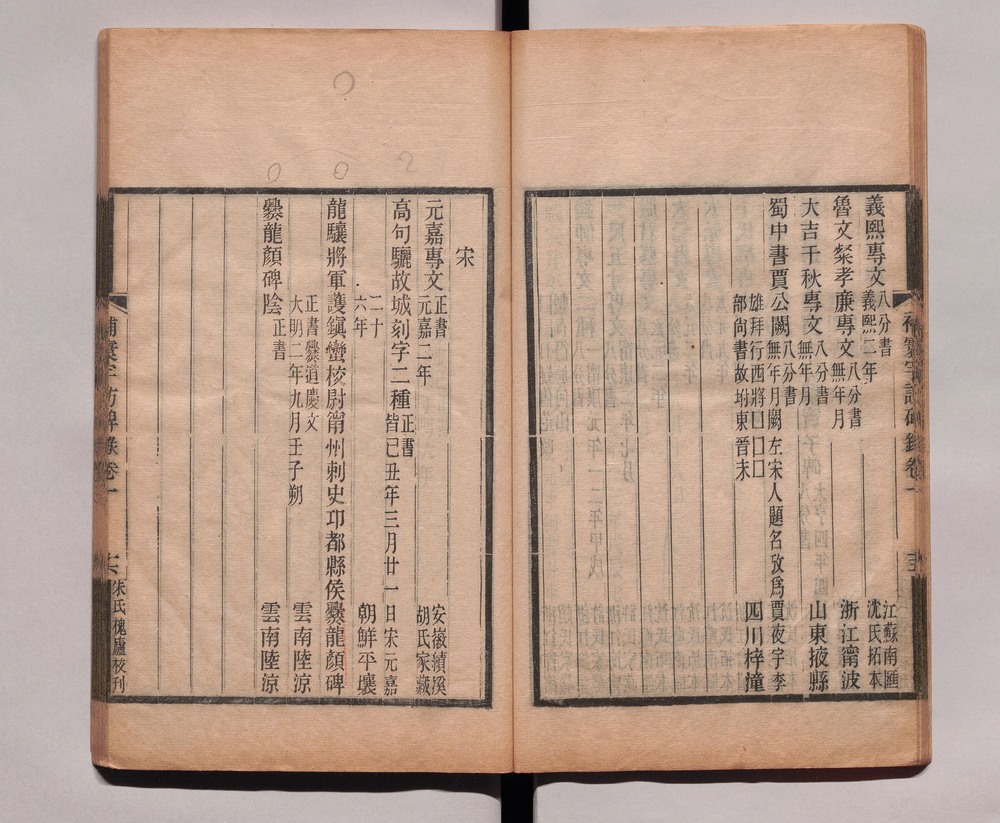 義熙專文八分書義熙二年江蘇南匯沈氏拓本
魯文粲孝廉專文八分書無年月浙江甯波
大吉千秋專文八分書無年月山東掖縣
蜀中書賈公闕八分書無年月闕左宋人題名攷爲賈夜宇李
雄拜行西將囗囗囗部尚書故坿東晉末四川梓潼
補寰宇訪碑錄卷一
宋
元嘉專文正書元嘉二年安徽績溪胡氏家藏
高句驪故城刻字二種正書皆己丑年三月廿一日宋元嘉
二十六年朝鮮平壤
龍驤將軍護鎭蠻校尉甯州刺史邛都縣侯爨龍顏碑
正書爨道慶文大明二年九月壬子朔雲南陸涼
爨龍顏碑陰正書雲南陸涼
補寰宇訪碑錄卷一
朱氏槐廬校刊